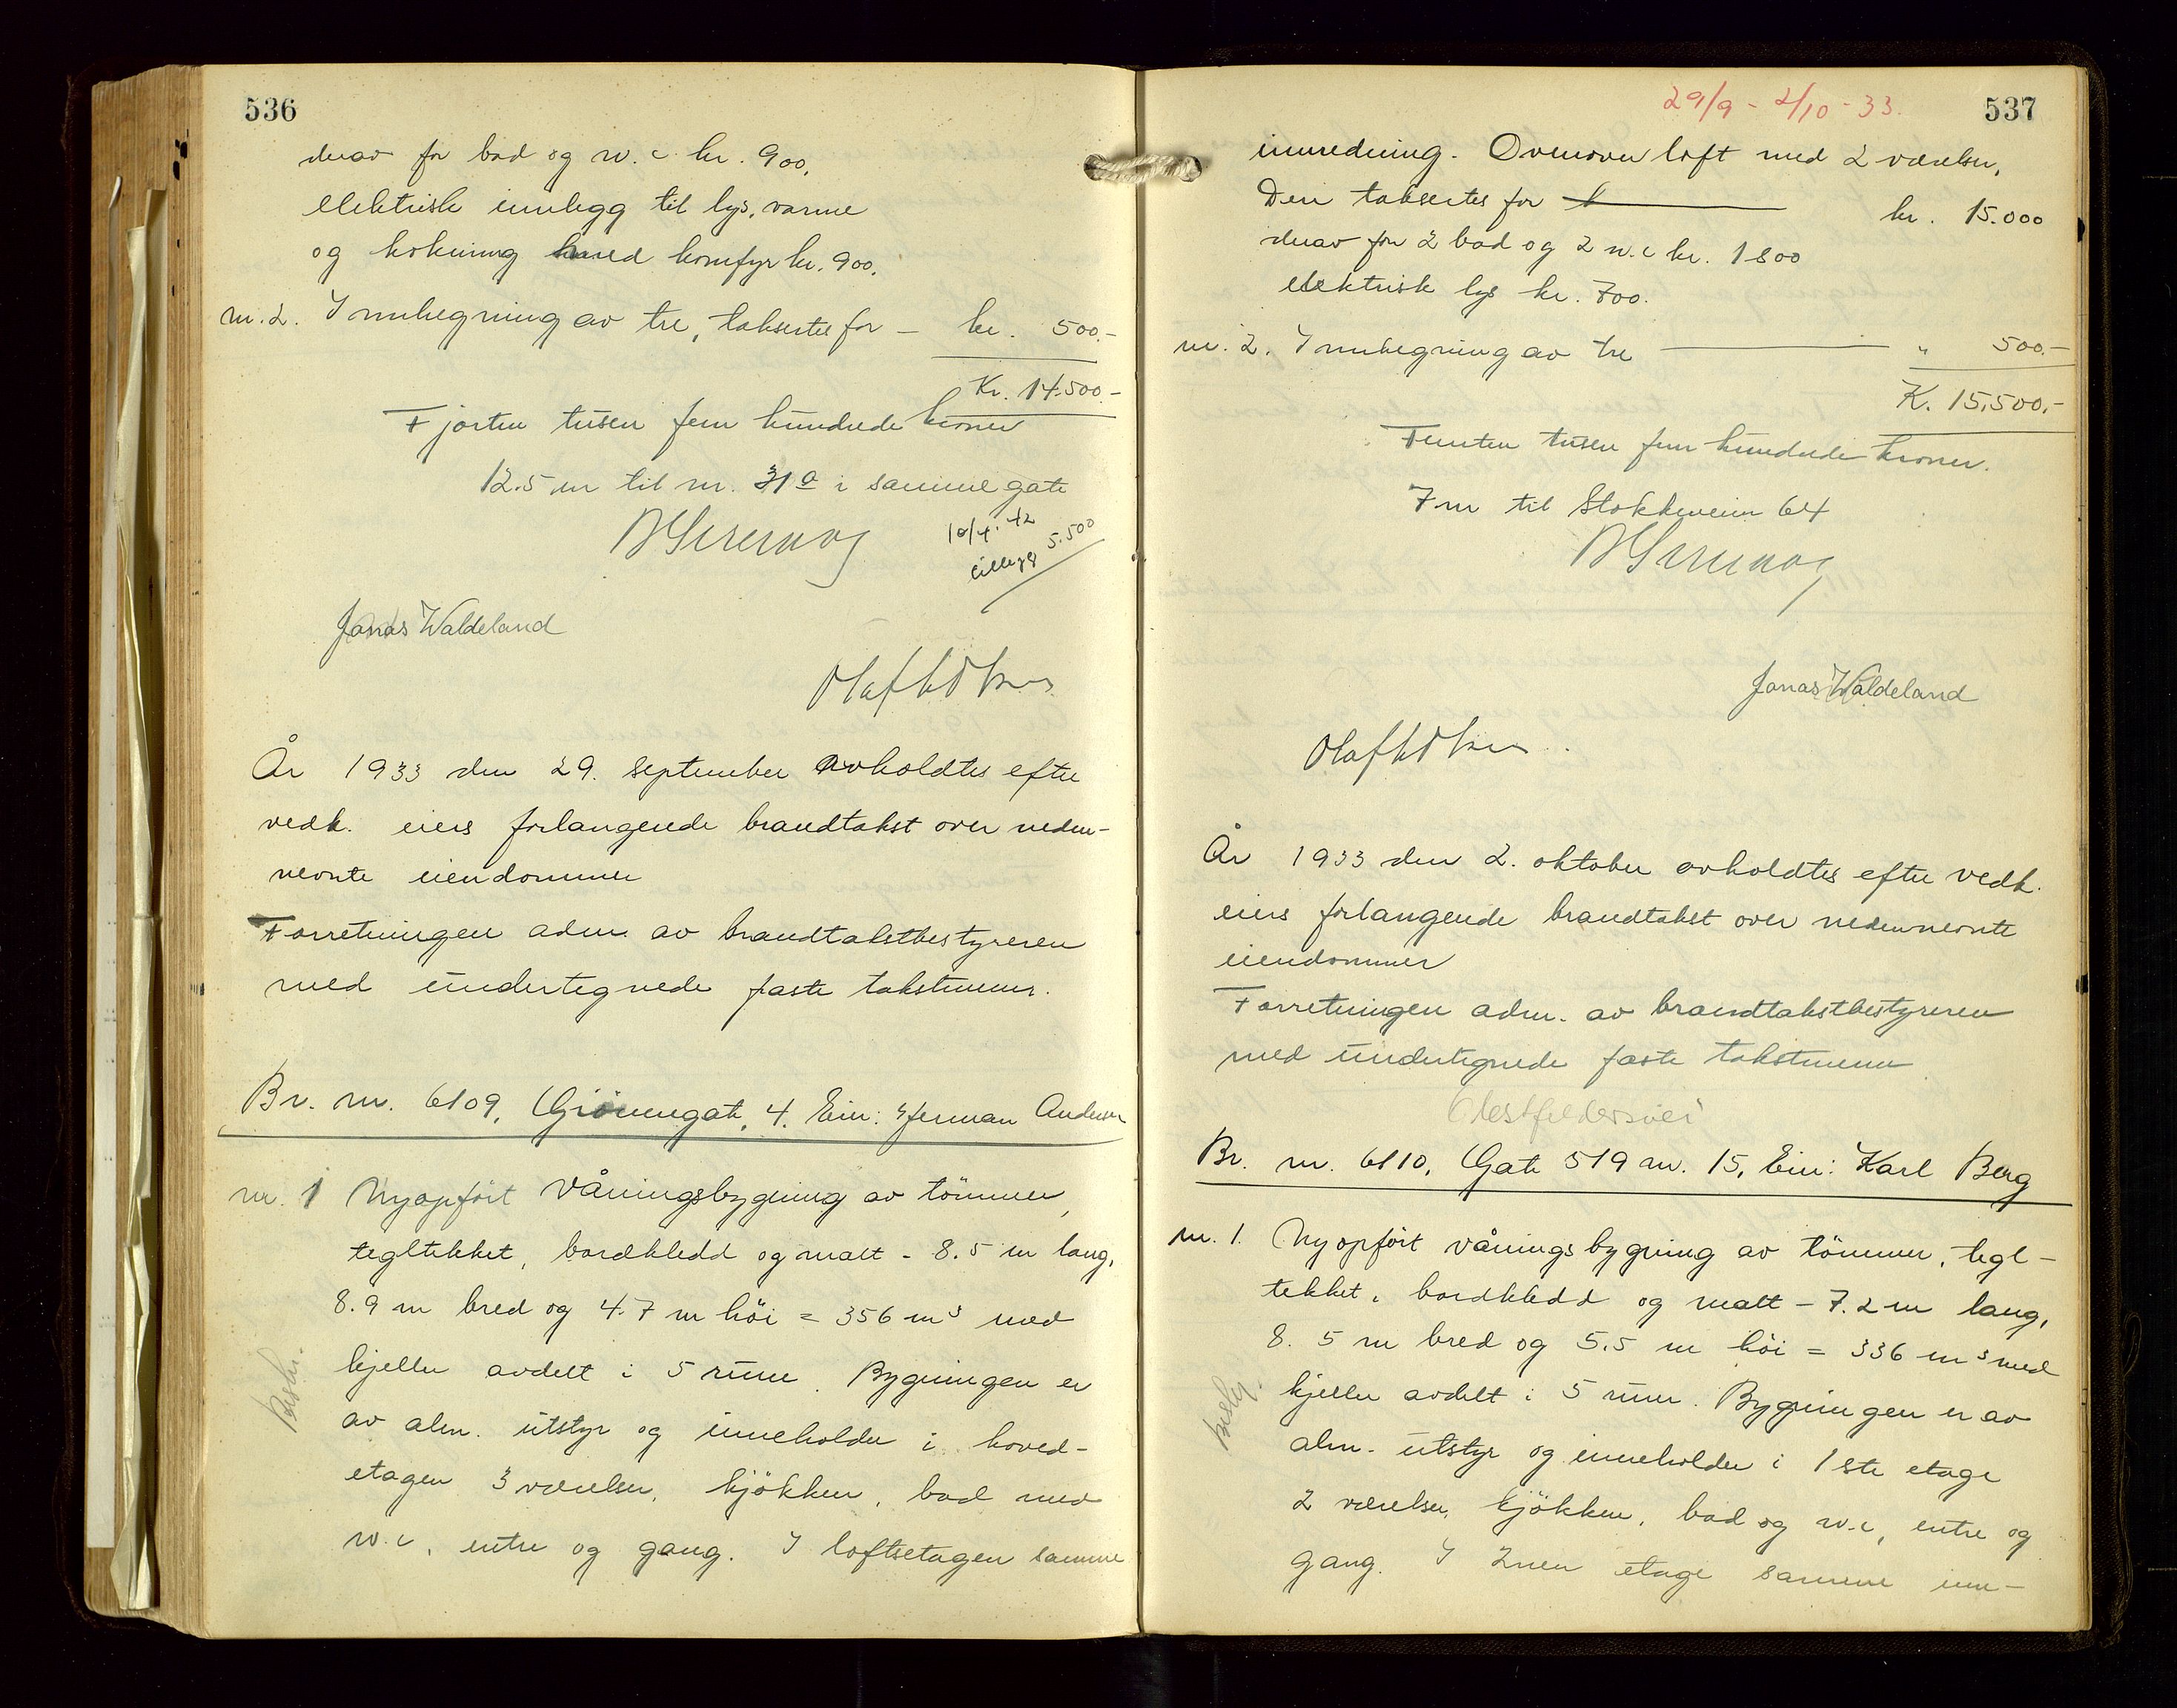 536
derav for bad og w.c. kr. 900,
elektrisk innlegg til lys, varme
og kokning med komfyr kr. 900.
nr. 2. Innhegning av tre, taksertes for – kr. 500.–
Kr. 14.500.–
Fjorten tusen fem hundrede kroner
12.5 m til nr. 31a i samme gate
10/4. 42
tillegg 5.500
Jonas Waldeland
År 1933 den 29. september avholdtes efter
vedk. eiers forlangende brandtakst over neden-
nevnte eiendommer
Forretningen adm. av brandtakstbestyreren
med undertegnede faste takstmenn.
Br. nr. 6109, Grönnegate 4. Eier: Herman Andersen
nr. 1 Nyopfört våningsbygning av tömmer,
tegltekket, bordkledd og malt – 8.5 m lang,
8.9 m bred og 4.7 m höi = 356 m³ med
kjeller avdelt i 5 rum. Bygningen er
av alm. utstyr og inneholder i hoved-
etagen 3 værelser, kjökken, bad med
w.c, entre og gang. I loftsetagen samme
29/9 - 2/10 - 33.
537
innredning. Ovenover loft med 2 værelser,
Den taksertes for kr. 15.000
derav for 2 bad og 2 w.c kr. 1800
elektrisk lys kr. 700.
nr. 2. Innhegning av tre " 500.–
K. 15.500.–
Femten tusen fem hundrede kroner.
7 m til Stokkaveien 64
Jonas Waldeland
År 1933 den 2. oktober avholdtes efter vedk.
eiers forlangende brandtakst over nedennevnte
eiendommer
Forretningen adm. av brandtakstbestyreren
med undertegnede faste takstmenn
Br. nr. 6110, Gate 519 nr. 15, Eier: Karl Berg
nr. 1. Nyopfört våningsbygning av tömmer, tegl-
tekket, bordkledd og malt – 7.2 m lang,
8.5 m bred og 5.5 m höi = 336 m³ med
kjeller avdelt i 5 rum. Bygningen er av
alm. utstyr og inneholder i 1ste etage
2 værelser, kjökken, bad og w.c, entre og
gang. I 2nen etage samme inn-